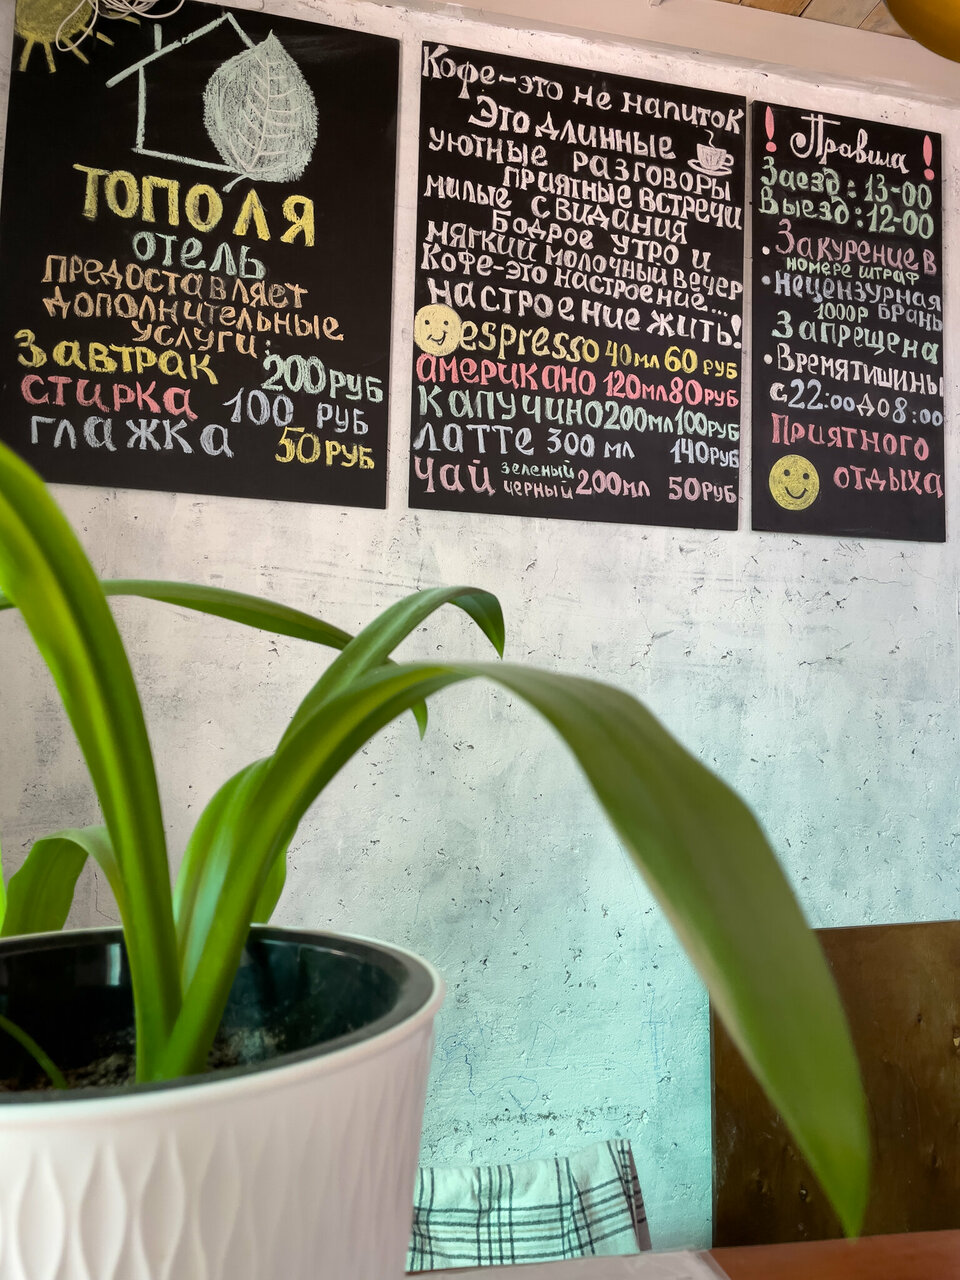 ТОПОЛЯ
отель
предоставляет
дополнительные
услуги:
Завтрак 200 руб
стирка 100 руб
глажка 50 руб
Кофе-это не напиток
Это длинные
уютные разговоры
приятные встречи
милые свидания
Бодрое утро и
мягкий молочный вечер
Кофе-это настроение...
настроение жить!
espresso 40 мл 60 руб
американо 120 мл 80 руб
капучино 200 мл 100 руб
латте 300 мл 140 руб
чай зеленый черный 200 мл 50 руб
! Правила !
Заезд: 13-00
Выезд: 12-00
• Закурение в
номере штраф
1000р
• Нецензурная
брань
Запрещена
• Время тишины
с 22:00 до 8:00
Приятного
отдыха